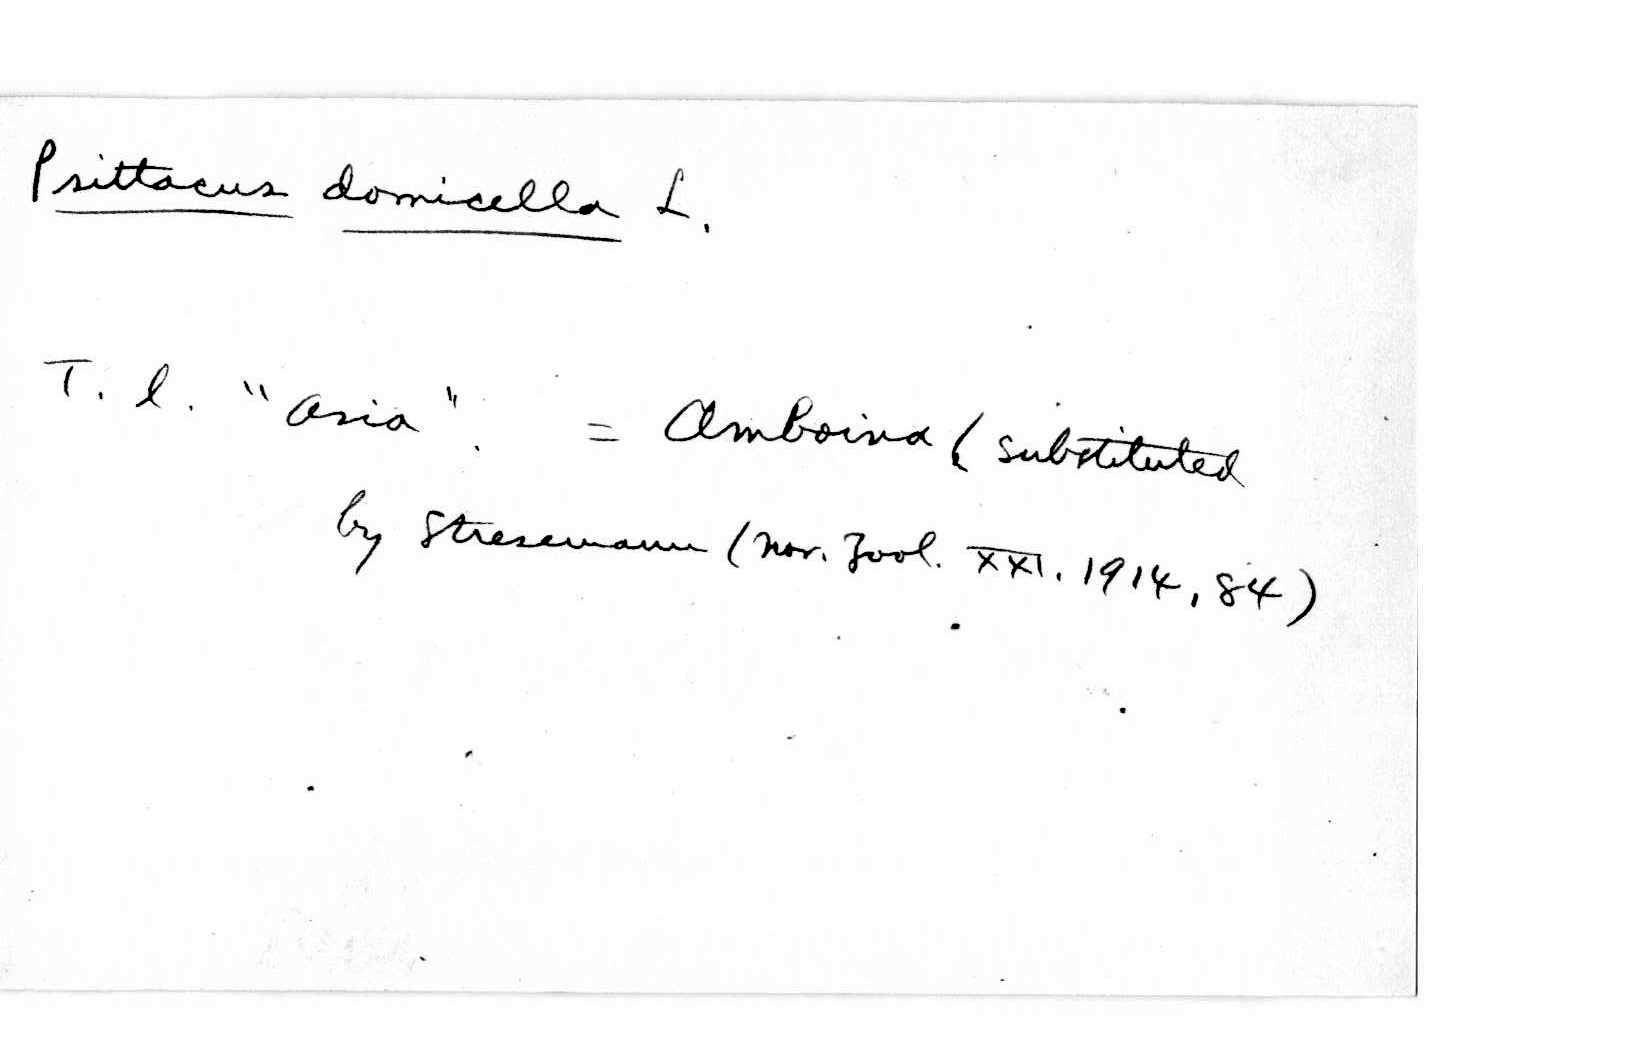 Psittacus domicella L.
T. l. "Asia". = Amboina (substituted
by Stresemann (Nov. Zool. XXI. 1914, 84)